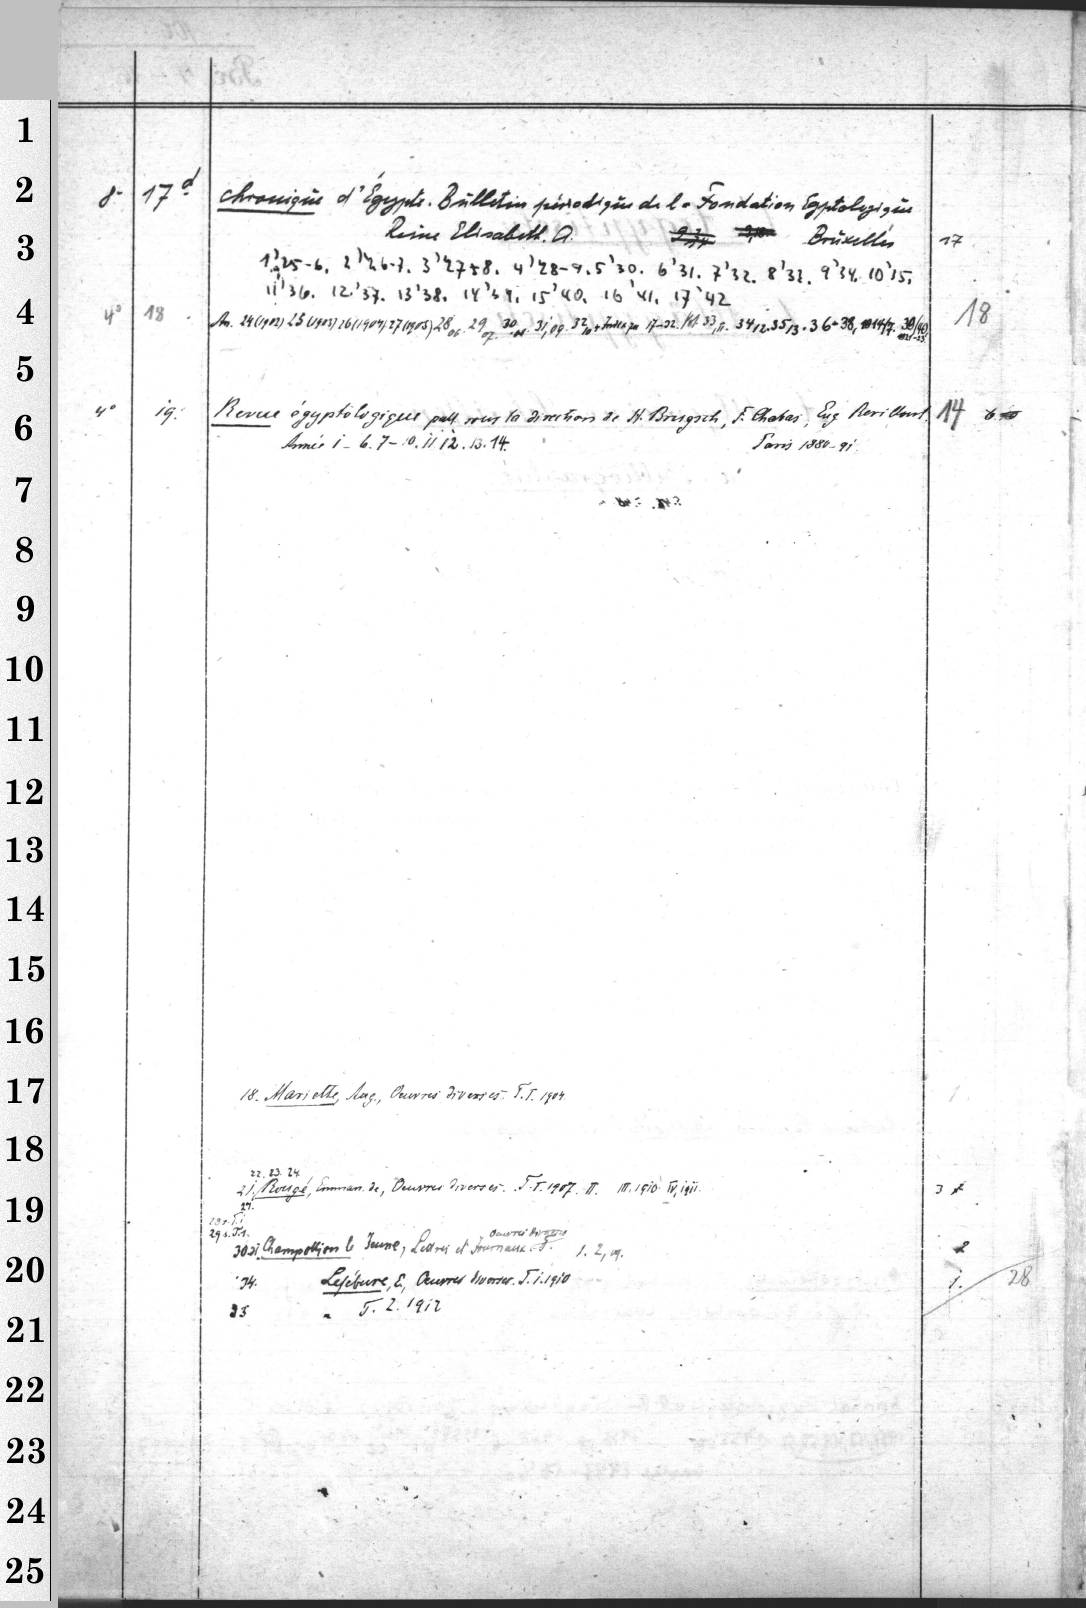 1
2
3
4
5
6
7
8
9
10
11
12
13
14
15
16
17
18
19
20
21
22
23
24
25
8° 17d Chronique d'Égypte. Bulletin périodique de la Fondation Egyptologique
Reine Elisabeth. A. Bruxelles 17
1,'25-6. 2)'26-7. 3'27+8. 4'28-9. 5'30. 6'31. 7'32. 8'33. 9'34. 10'15.
11'36. 12'37. 13'38. 14'39. 15'40. 16'41. 17'42
4° 18 An. 24(1902) 25(1903) 26(1904) 27(1905) 28 29 30 31,09. 32 + Index zu 17-32. 33, 34 35 36-38, 39/40 18
4° 19. Revue égyptologique publ. sous la direction de H. Brugsch, F. Chabas, Eug Revillout. 14
Année 1-6. 7-10. 11 12. 13. 14. Paris 1880-91.
18. Mariette, Aug., Oeuvres diverses. T.I. 1904
22. 23. 24.
21. Rougé, Emman. de, Oeuvres diverses. T.I. 1907. II. III. 1910 IV, 1911. 3
27.
Oeuvres diverses
30.31. Champollion le Jeune, Lettres et Journaux. T. 1. 2, 09. 2
34. Lefébure, E, Oeuvres diverses. T. 1. 1910 1. 28
35 " T. 2. 1912